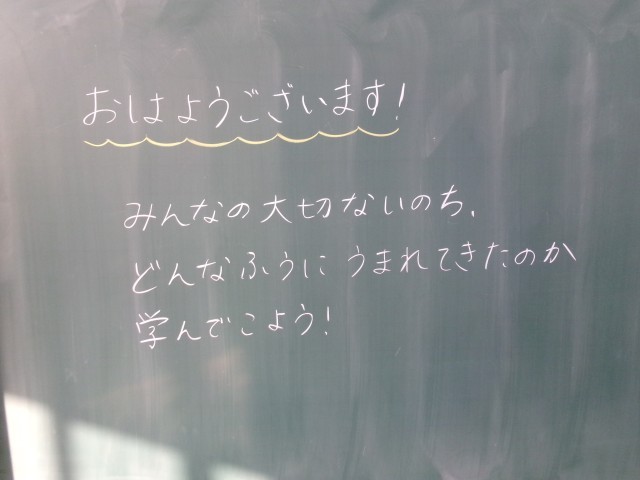 おはようございます!
みんなの大切ないのち、
どんなふうにうまれてきたのか
学んでこよう!